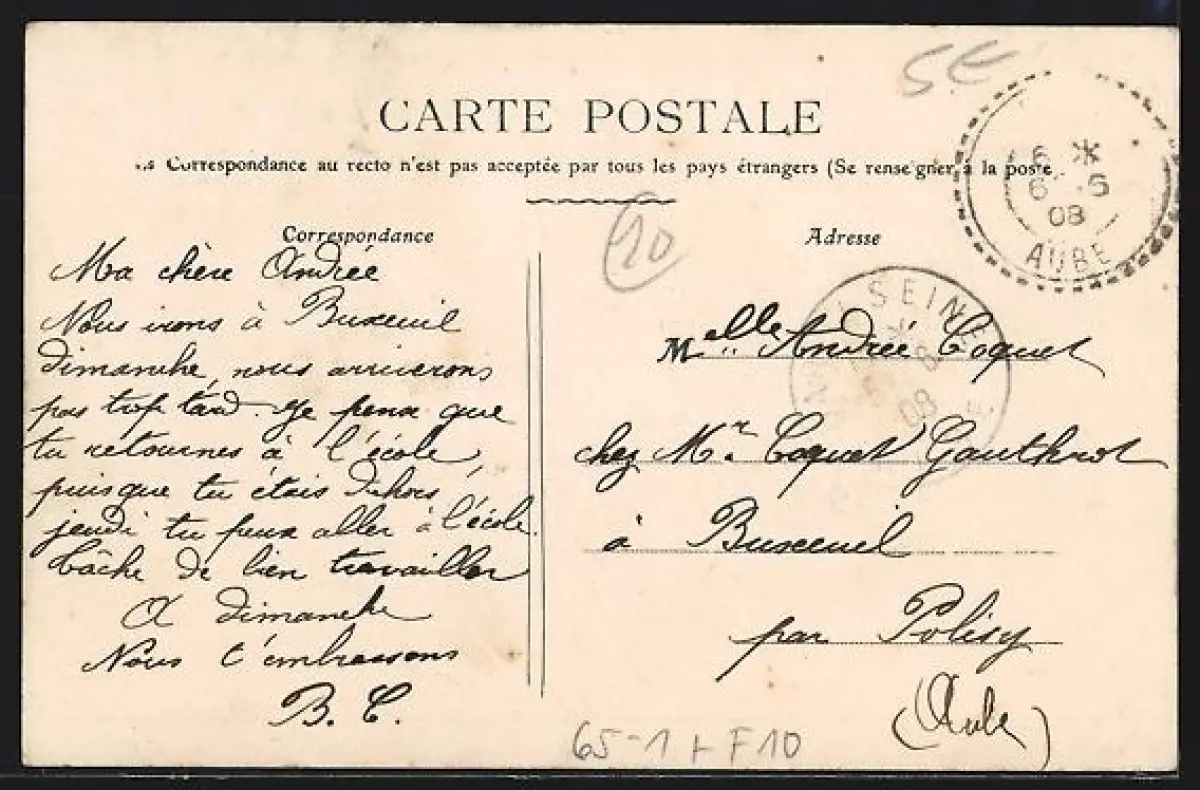 5€
CARTE POSTALE
Correspondance au recto n'est pas acceptée par tous les pays étrangers (Se renseigner à la poste
6 *
6 -6
08
AUBE
10
Correspondance
Ma chère Andrée
Nous irons à Buxeuil
dimanche, nous arriverons
pas trop tard. Je pense que
tu retournes à l'école,
puisque tu étais dehors
jeudi tu peux aller à l'école.
Tâche de bien travailler
A dimanche
Nous t'embrassons
B. C.
Adresse
SEINE
08
Melle Andrée Coquet
chez Mr Coquet Gauthrot
à Buxeuil
par Polisy
(Aube)
65-1 + F10